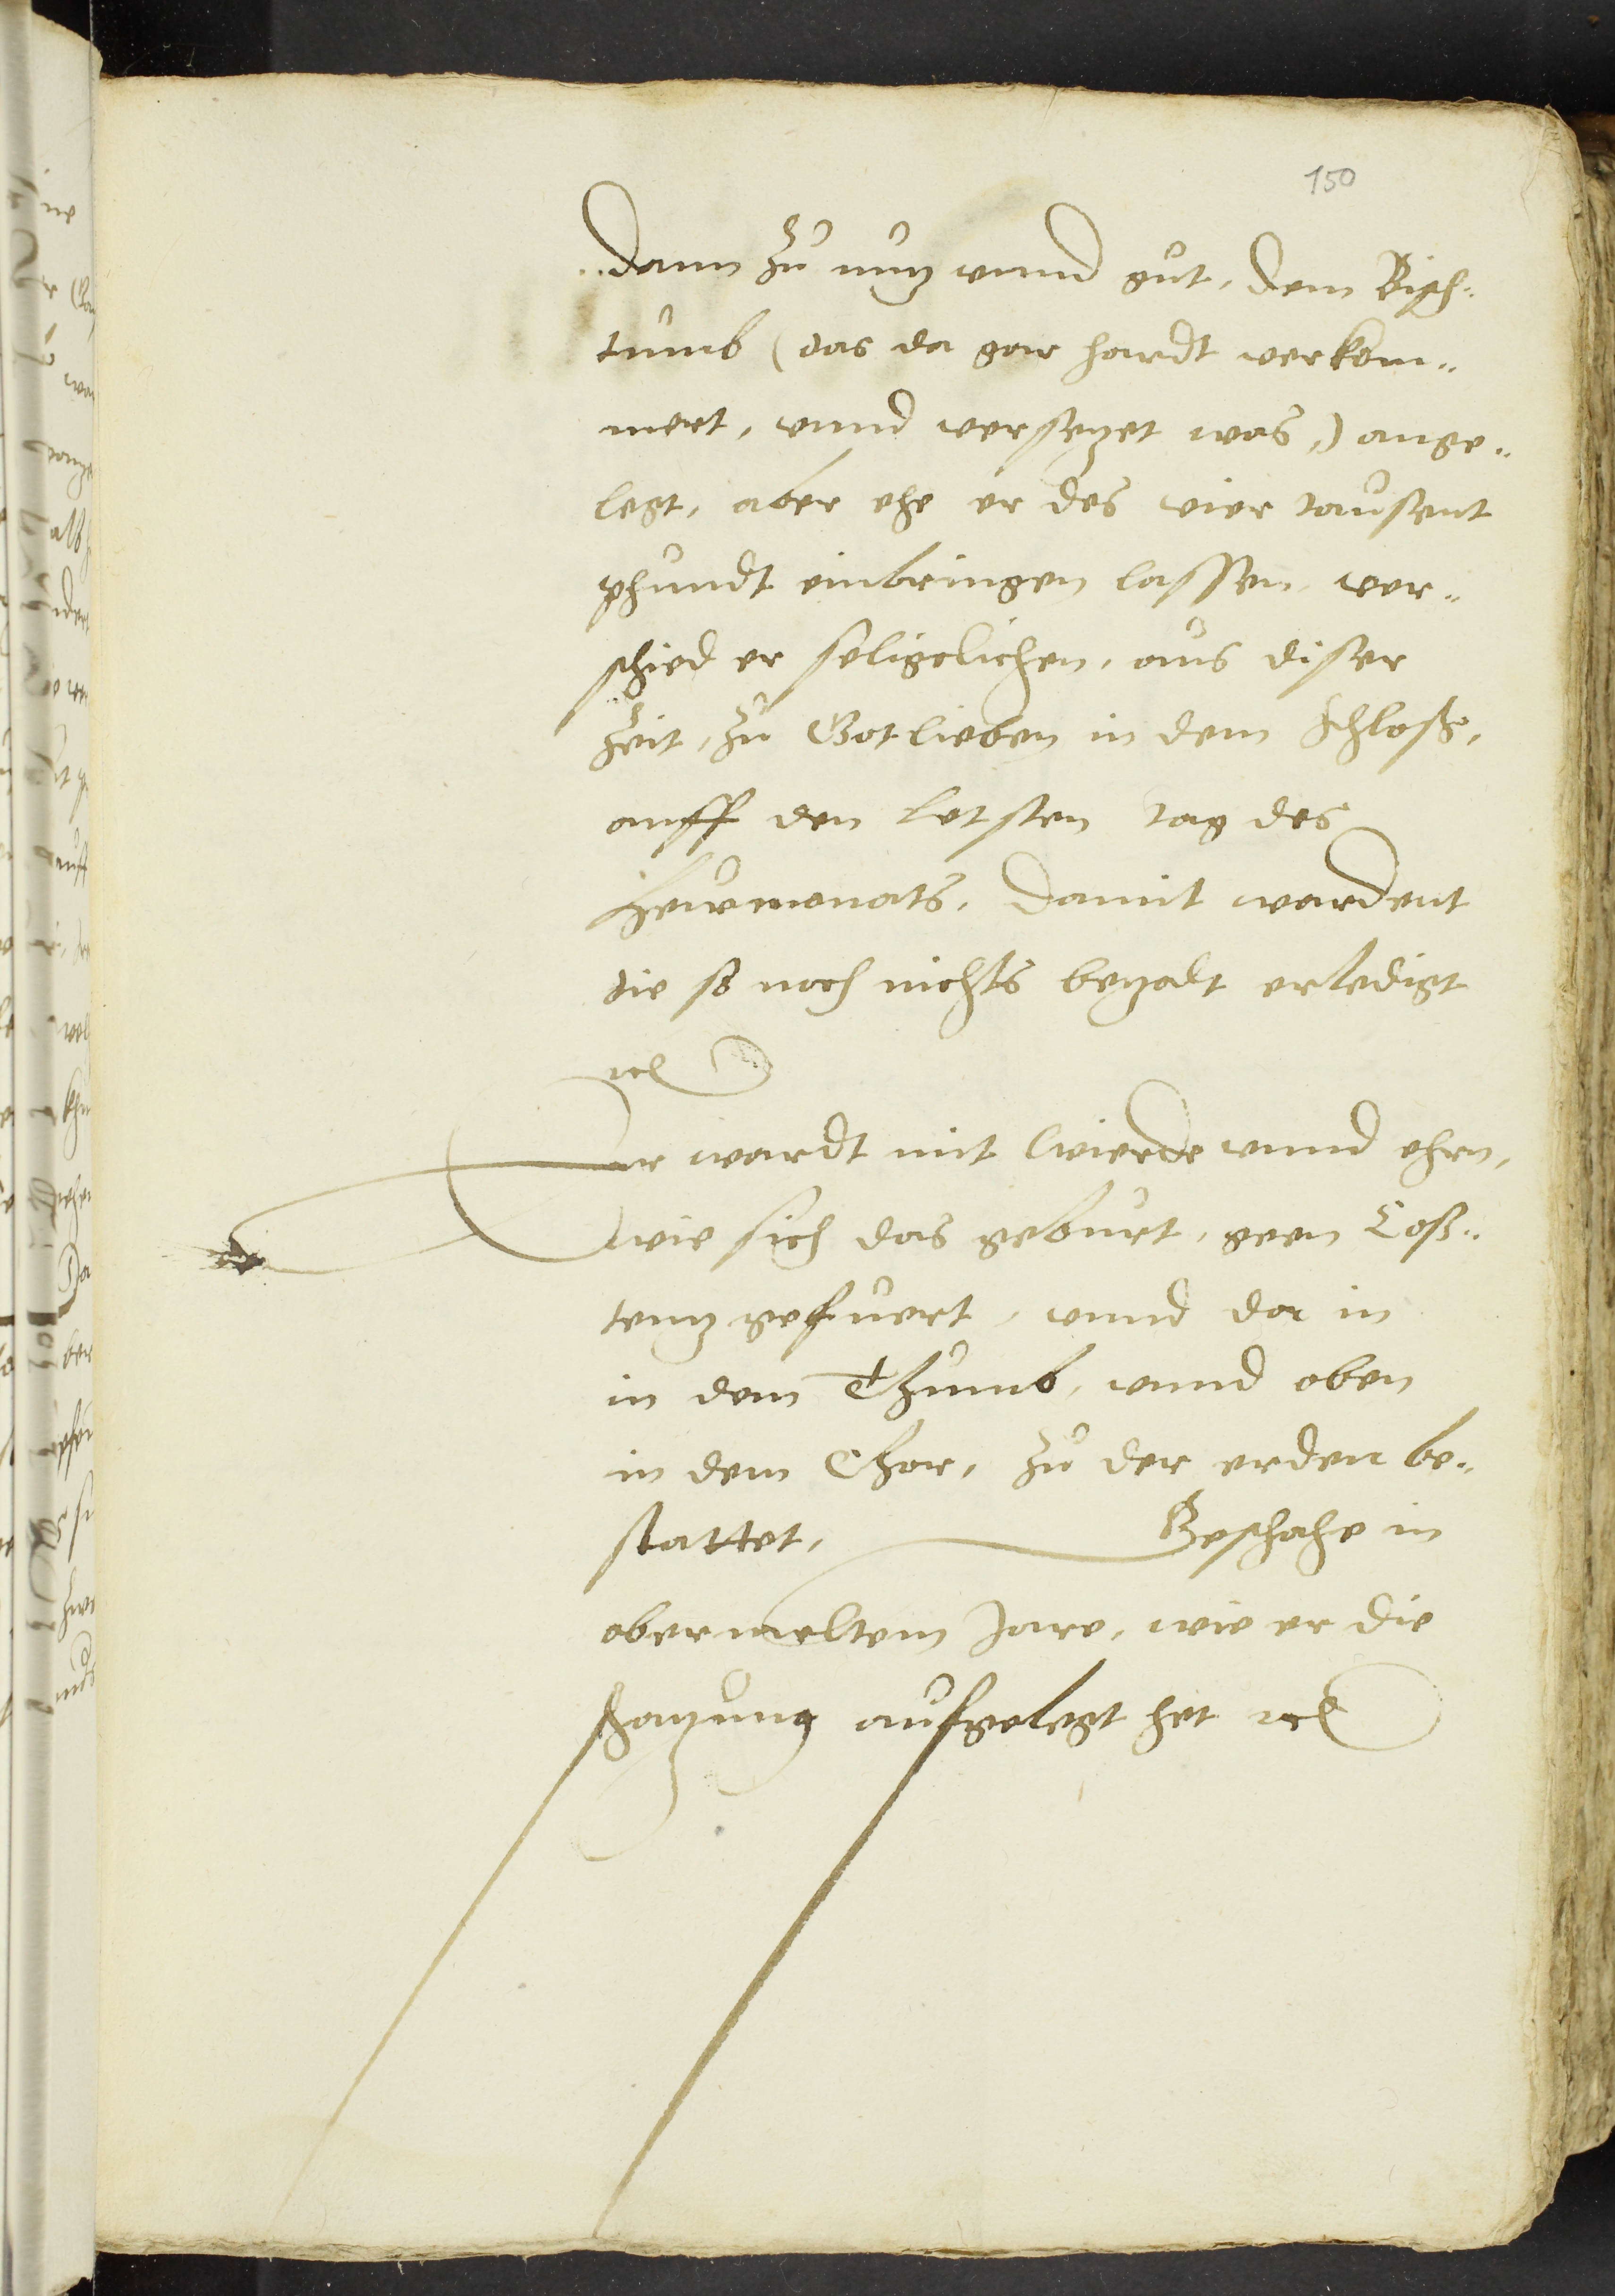 150
dann zu nutz vnnd gut, dem Bisch-
tumb (das da gar hardt verkom-
mert, vnnd versetzet was,) ange-
legt, aber ehe er des vier tausent
phundt einbringen lassen, ver-
schied er seligclichen, aus diser
Zeit, zu Gotlieben in dem Schloß,
auff den letsten tag des
Heuwmonats, damit wardent
die so noch nichts bezalt erledigt
etc
Er wardt mit wierde vnnd ehrn,
wie sich das geburt, geen Coß-
tentz gefuert, vnnd da in
in dem Thumb, vnnd oben
in dem Chor, zu der erden be-
stattet, Geschahe in
obermeltem Jare, wie er die
schatzung aufgelegt het etc